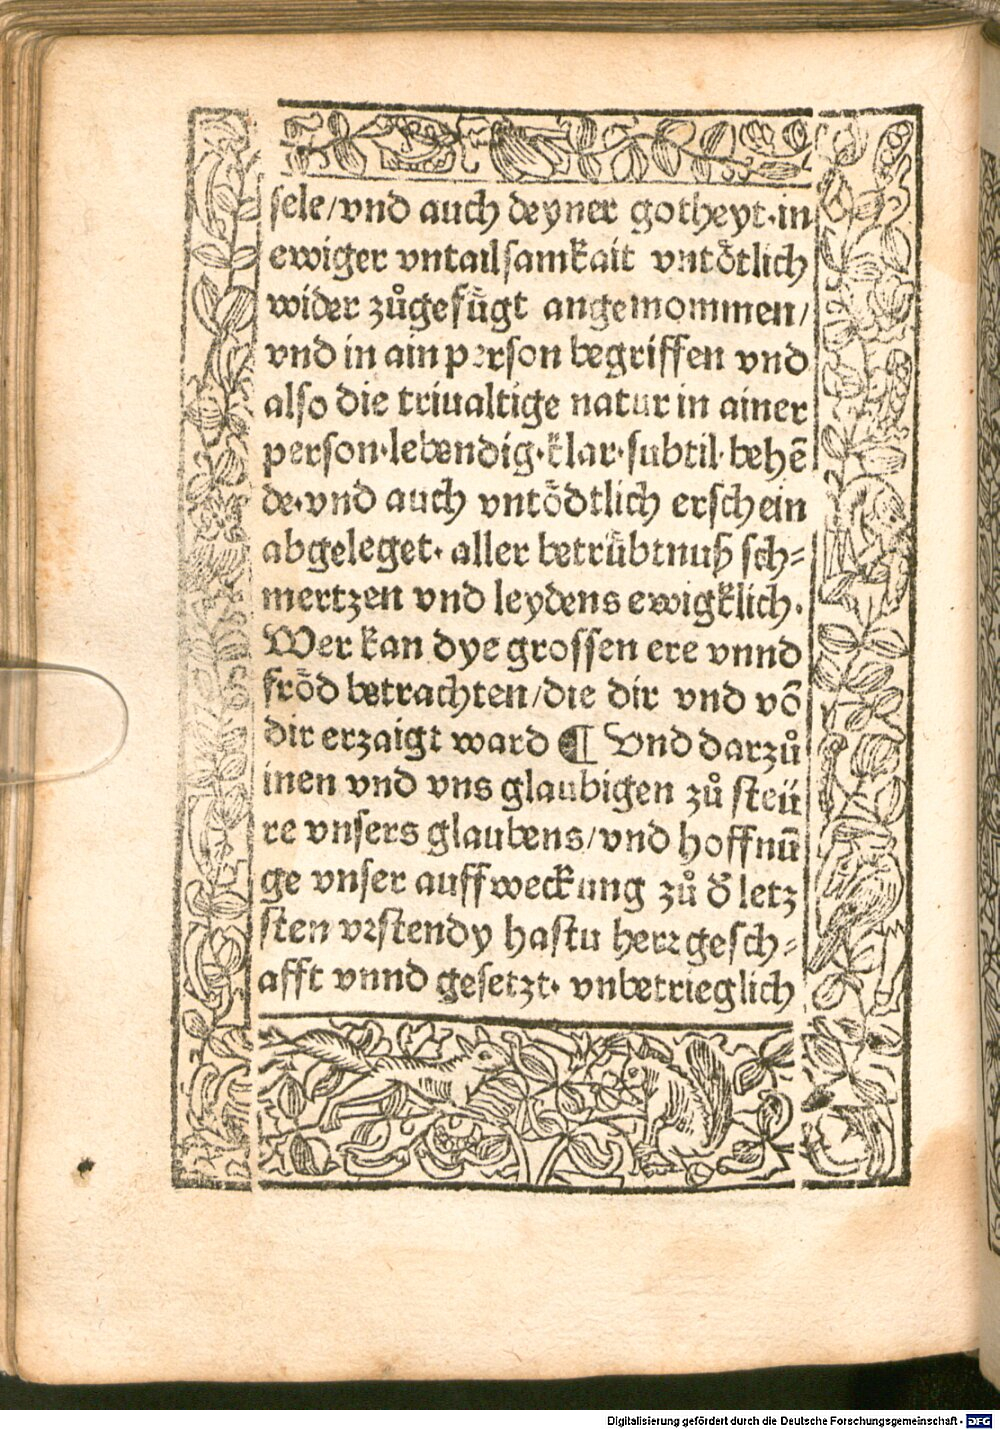 sele/vnd auch deyner gotheyt·in
ewiger vntailsamkait vntőtlich
wider zůgefügt angemommen/
vnd in ain person begriffen vnd
also die triualtige natur in ainer
person·lebendig·klar·subtil·behē
de·vnd auch vntődtlich erschein
abgeleget· aller betrübtnuß sch-
mertzen vnd leydens ewigklich·
Wer kan dye grossen ere vnnd
frőd betrachten/die dir vnd võ
dir erzaigt ward ¶ Vnd darzů
inen vnd vns glaubigen zů steü
re vnsers glaubens/vnd hoffnū
ge vnser auffweckung zů d̄ letz
sten vrstendy hastu herr gesch-
afft vnnd gesetzt· vnbetrieglich
Digitalisierung gefördert durch die Deutsche Forschungsgemeinschaft - DFG